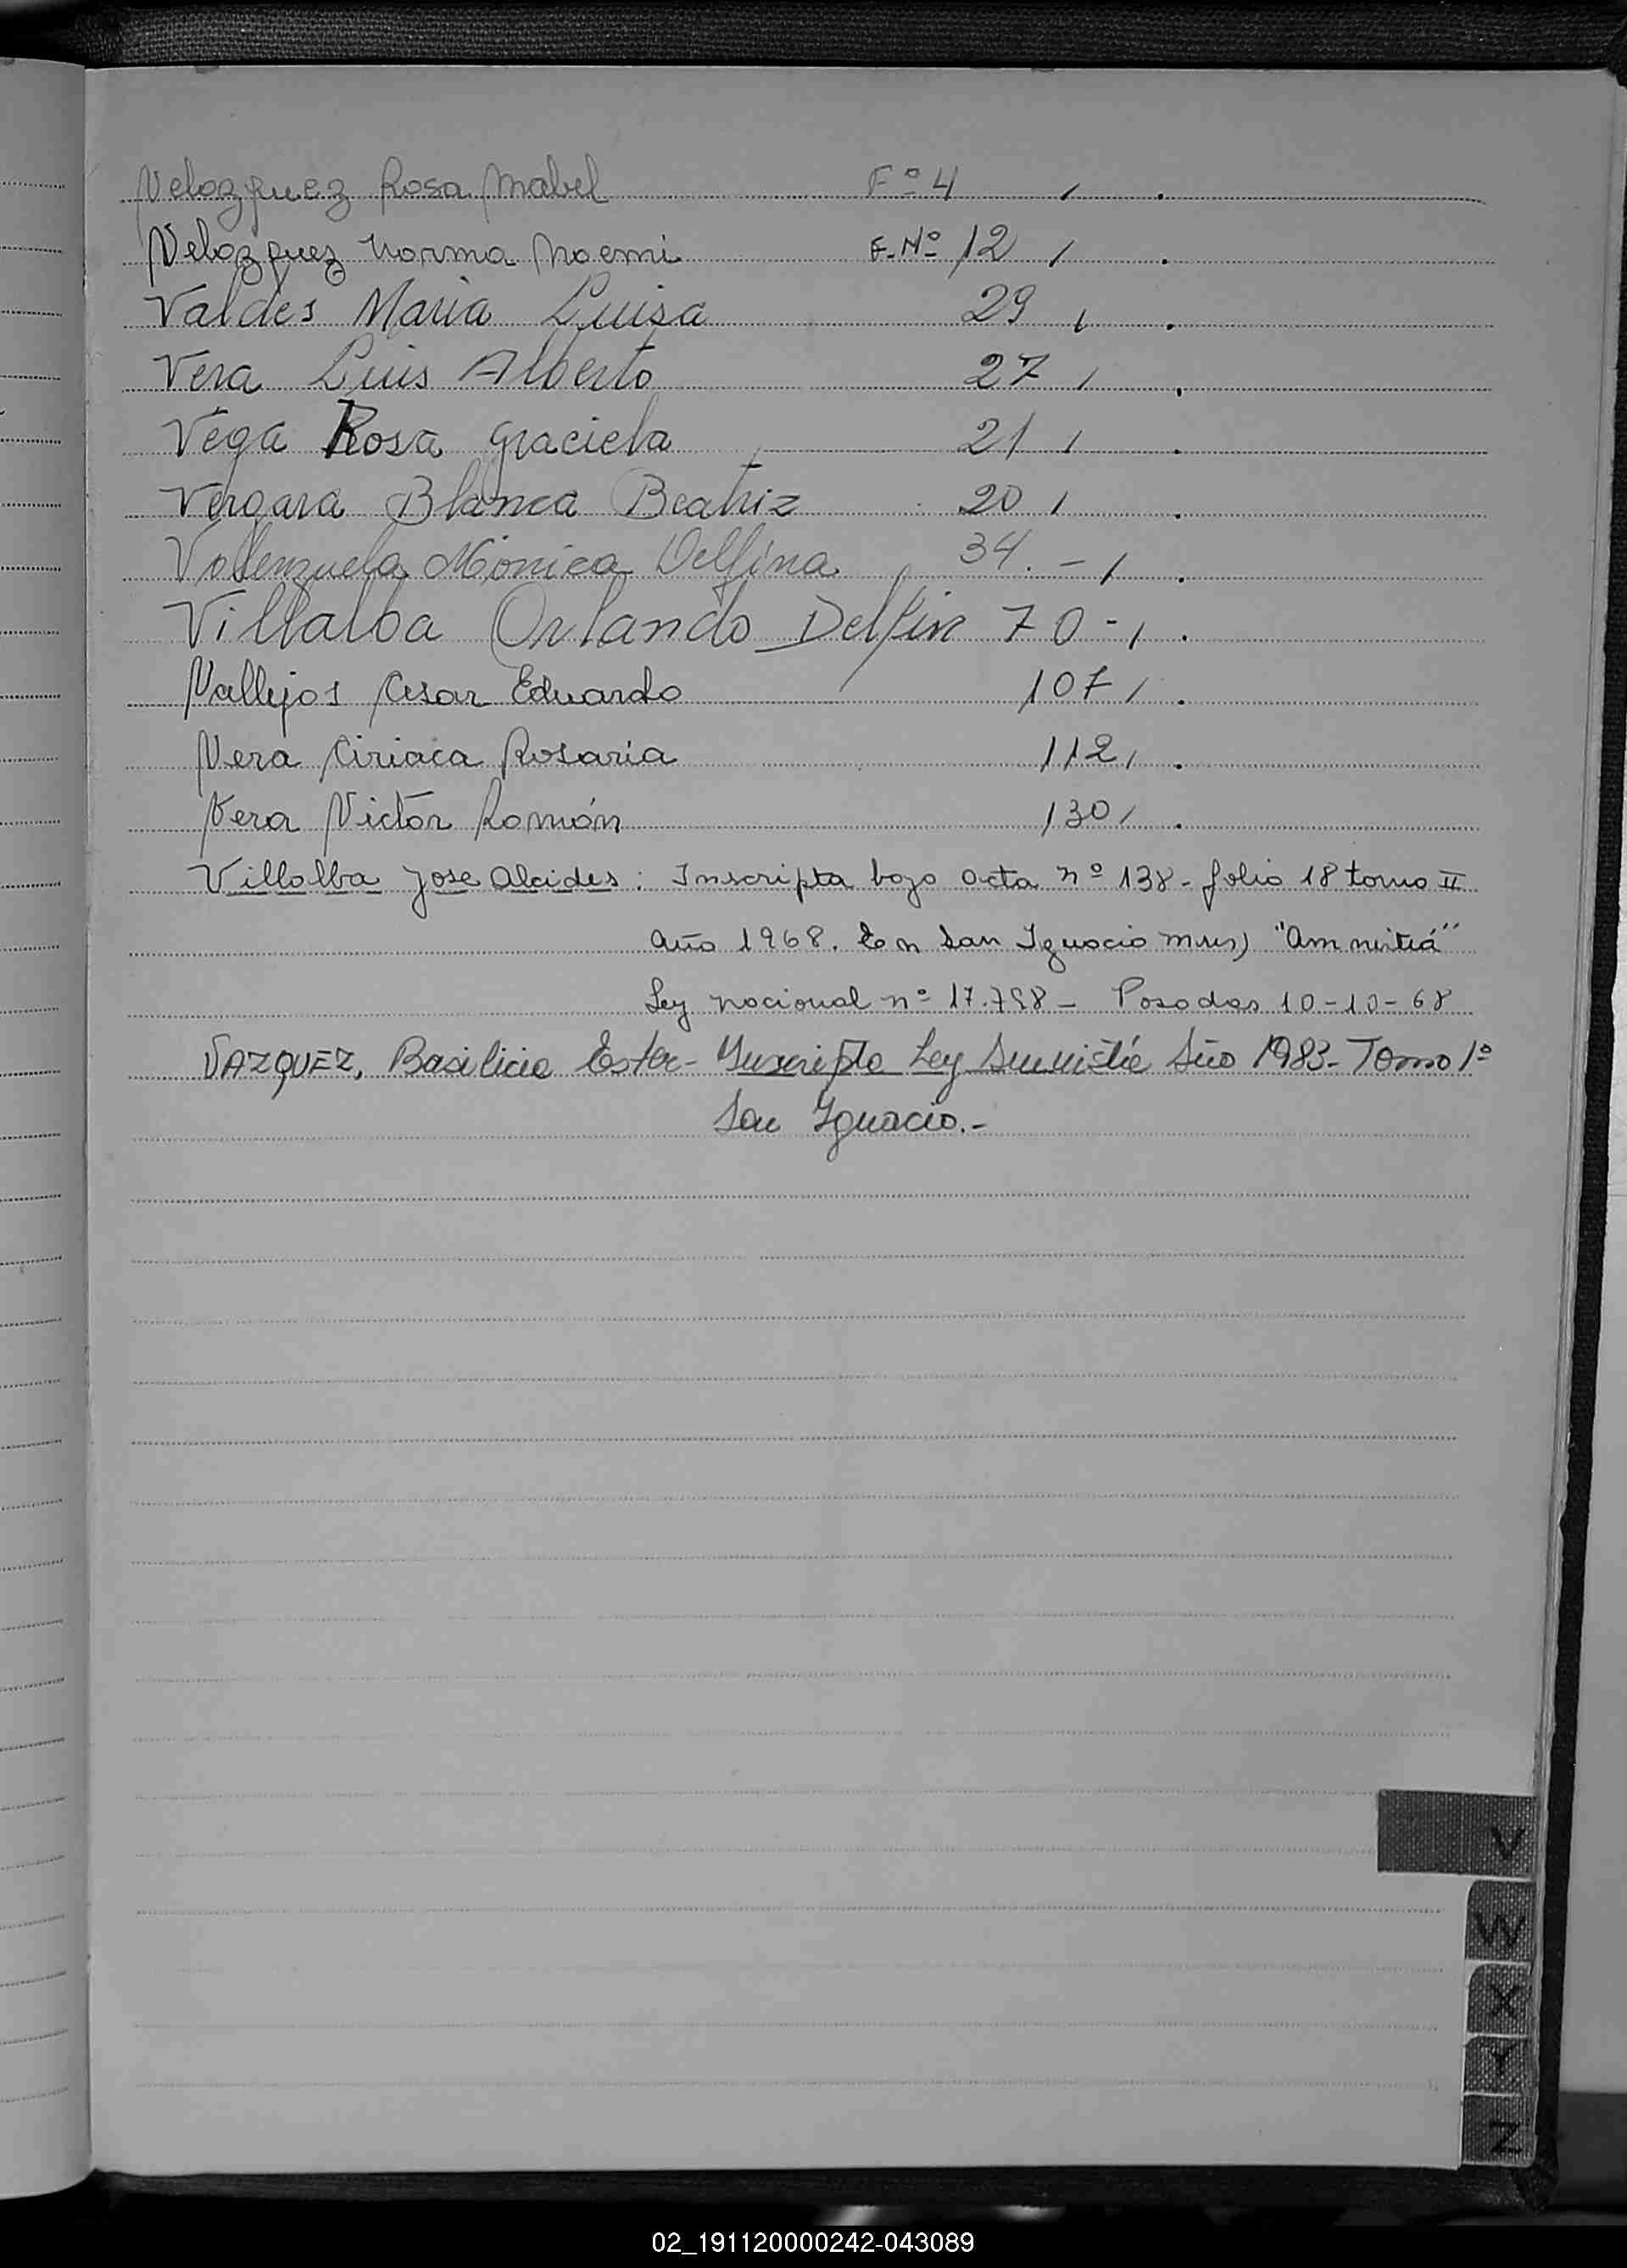 Velozquez Rosa Mabel Fº 4 , .
Velozquez Norma Noemi F.Nº 12 , .
Valdes Maria Luisa 29 , .
Vera Luis Alberto 27 , .
Vega Rosa Graciela 21 , .
Vergara Blanca Beatriz 20 , .
Valenzuela Mónica Delfina 34.- , .
Villalba Orlando Delfin 70 - , .
Vallejos Cesar Eduardo 107 , .
Vera Ciriaca Rosaria 112 , .
Vera Victor Román 130 , .
Villalba Jose Alcides: Inscripta bajo acta nº 138- folio 18 tomo II
año 1968. En San Ignacio Mnes) "Amnistiá"
Ley nacional nº 17.798 - Posadas 10-10-68
VAZQUEZ, Basilicia Ester - Inscripta Ley Amnistía Año 1983- Tomo 1º
San Ignacio.-
V
W
X
Y
Z
02_191120000242-043089